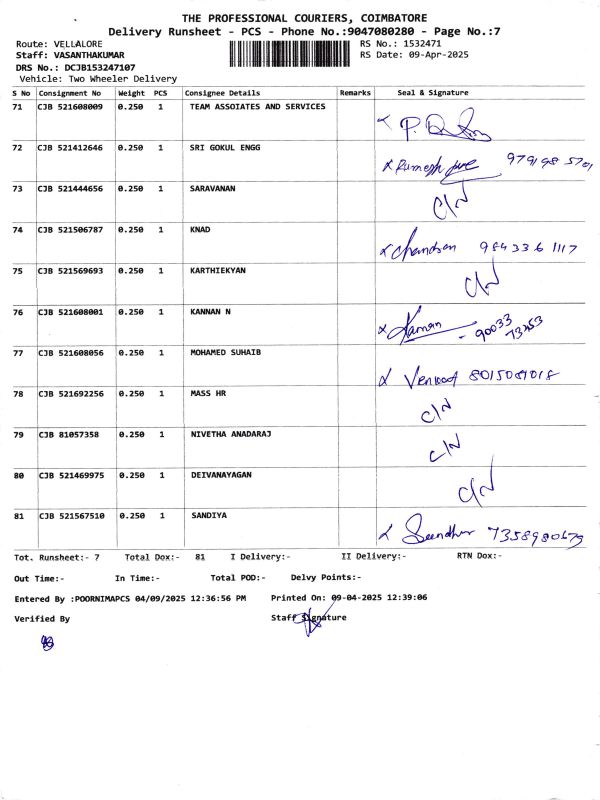 THE PROFESSIONAL COURIERS, COIMBATORE
Delivery Runsheet - PCS - Phone No.:9047080280 - Page No.:7
Route: VELLALORE RS No.: 1532471
Staff: VASANTHAKUMAR RS Date: 09-Apr-2025
DRS No.: DCJB153247107
Vehicle: Two Wheeler Delivery
S No Consignment No Weight PCS Consignee Details Remarks Seal & Signature
71 CJB 521608009 0.250 1 TEAM ASSOIATES AND SERVICES
72 CJB 521412646 0.250 1 SRI GOKUL ENGG Ramesh
73 CJB 521444656 0.250 1 SARAVANAN C/N
74 CJB 521506787 0.250 1 KNAD Chandran 984336 1117
75 CJB 521569693 0.250 1 KARTHIEKYAN C/N
76 CJB 521608001 0.250 1 KANNAN N 90033
77 CJB 521608056 0.250 1 MOHAMED SUHAIB 8015081018
78 CJB 521692256 0.250 1 MASS HR C/N
79 CJB 81057358 0.250 1 NIVETHA ANADARAJ C/N
80 CJB 521469975 0.250 1 DEIVANAYAGAN C/N
81 CJB 521567510 0.250 1 SANDIYA 7358980679
Tot. Runsheet:- 7 Total Dox:- 81 I Delivery:- II Delivery:- RTN Dox:-
Out Time:- In Time:- Total POD:- Delvy Points:-
Entered By :POORNIMAPCS 04/09/2025 12:36:56 PM Printed On: 09-04-2025 12:39:06
Verified By Staff Signature